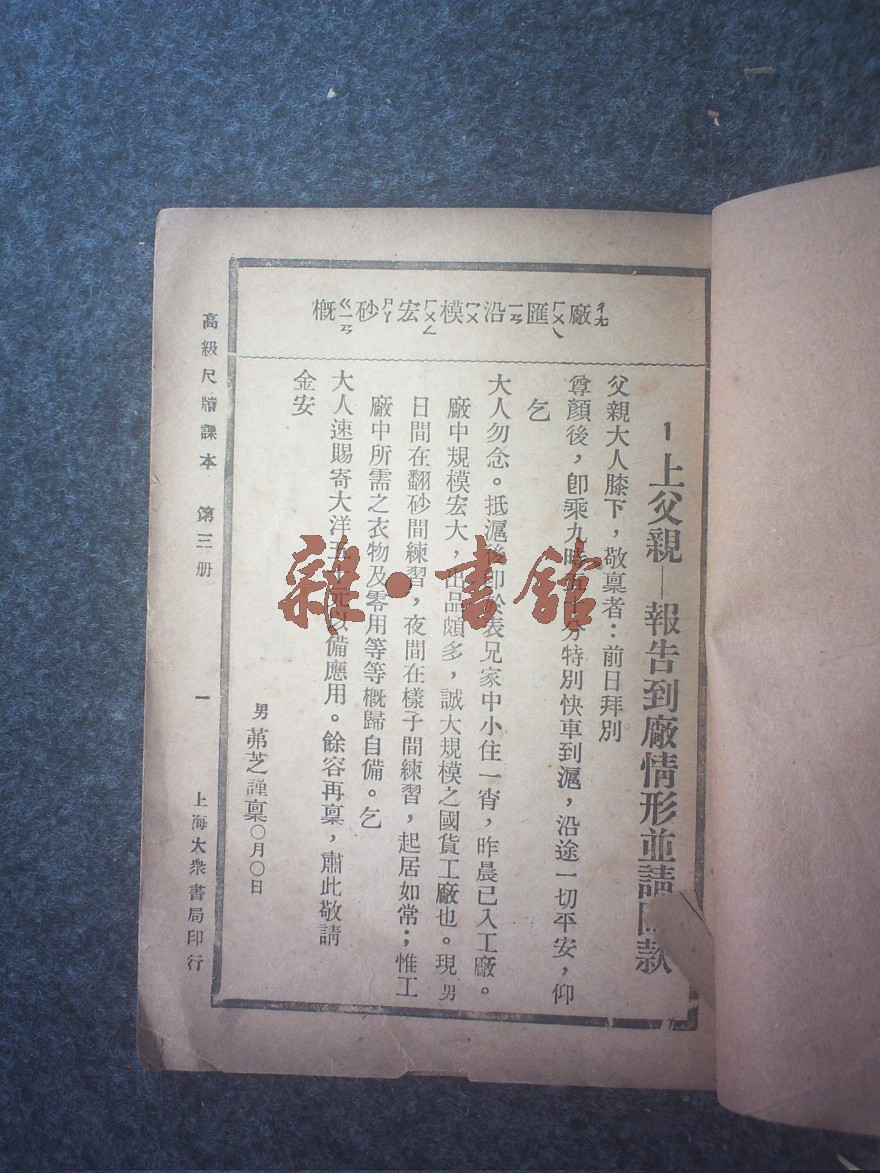 廠ㄔㄤ匯ㄏㄨㄟ沿ㄧㄢ模ㄇㄨ宏ㄏㄨㄥ砂ㄕㄚ概ㄍㄧㄢ
1 上父親—報告到廠情形並請款
父親大人膝下，敬稟者：前日拜別
尊顏後，卽乘九時 分特別快車到滬，沿途一切平安，仰
乞
大人勿念。抵滬後卽於表兄家中小住一宵，昨晨已入工廠。
廠中規模宏大，出品頗多，誠大規模之國貨工廠也。現男
日間在翻砂間練習，夜間在樣子間練習，起居如常；惟工
廠中所需之衣物及零用等等概歸自備。乞
大人速賜寄大洋五 元以備應用。餘容再稟，肅此敬請
金安
男 芾芝謹稟〇月〇日
高級尺牘課本 第三册 一 上海大衆書局印行
雜·書館